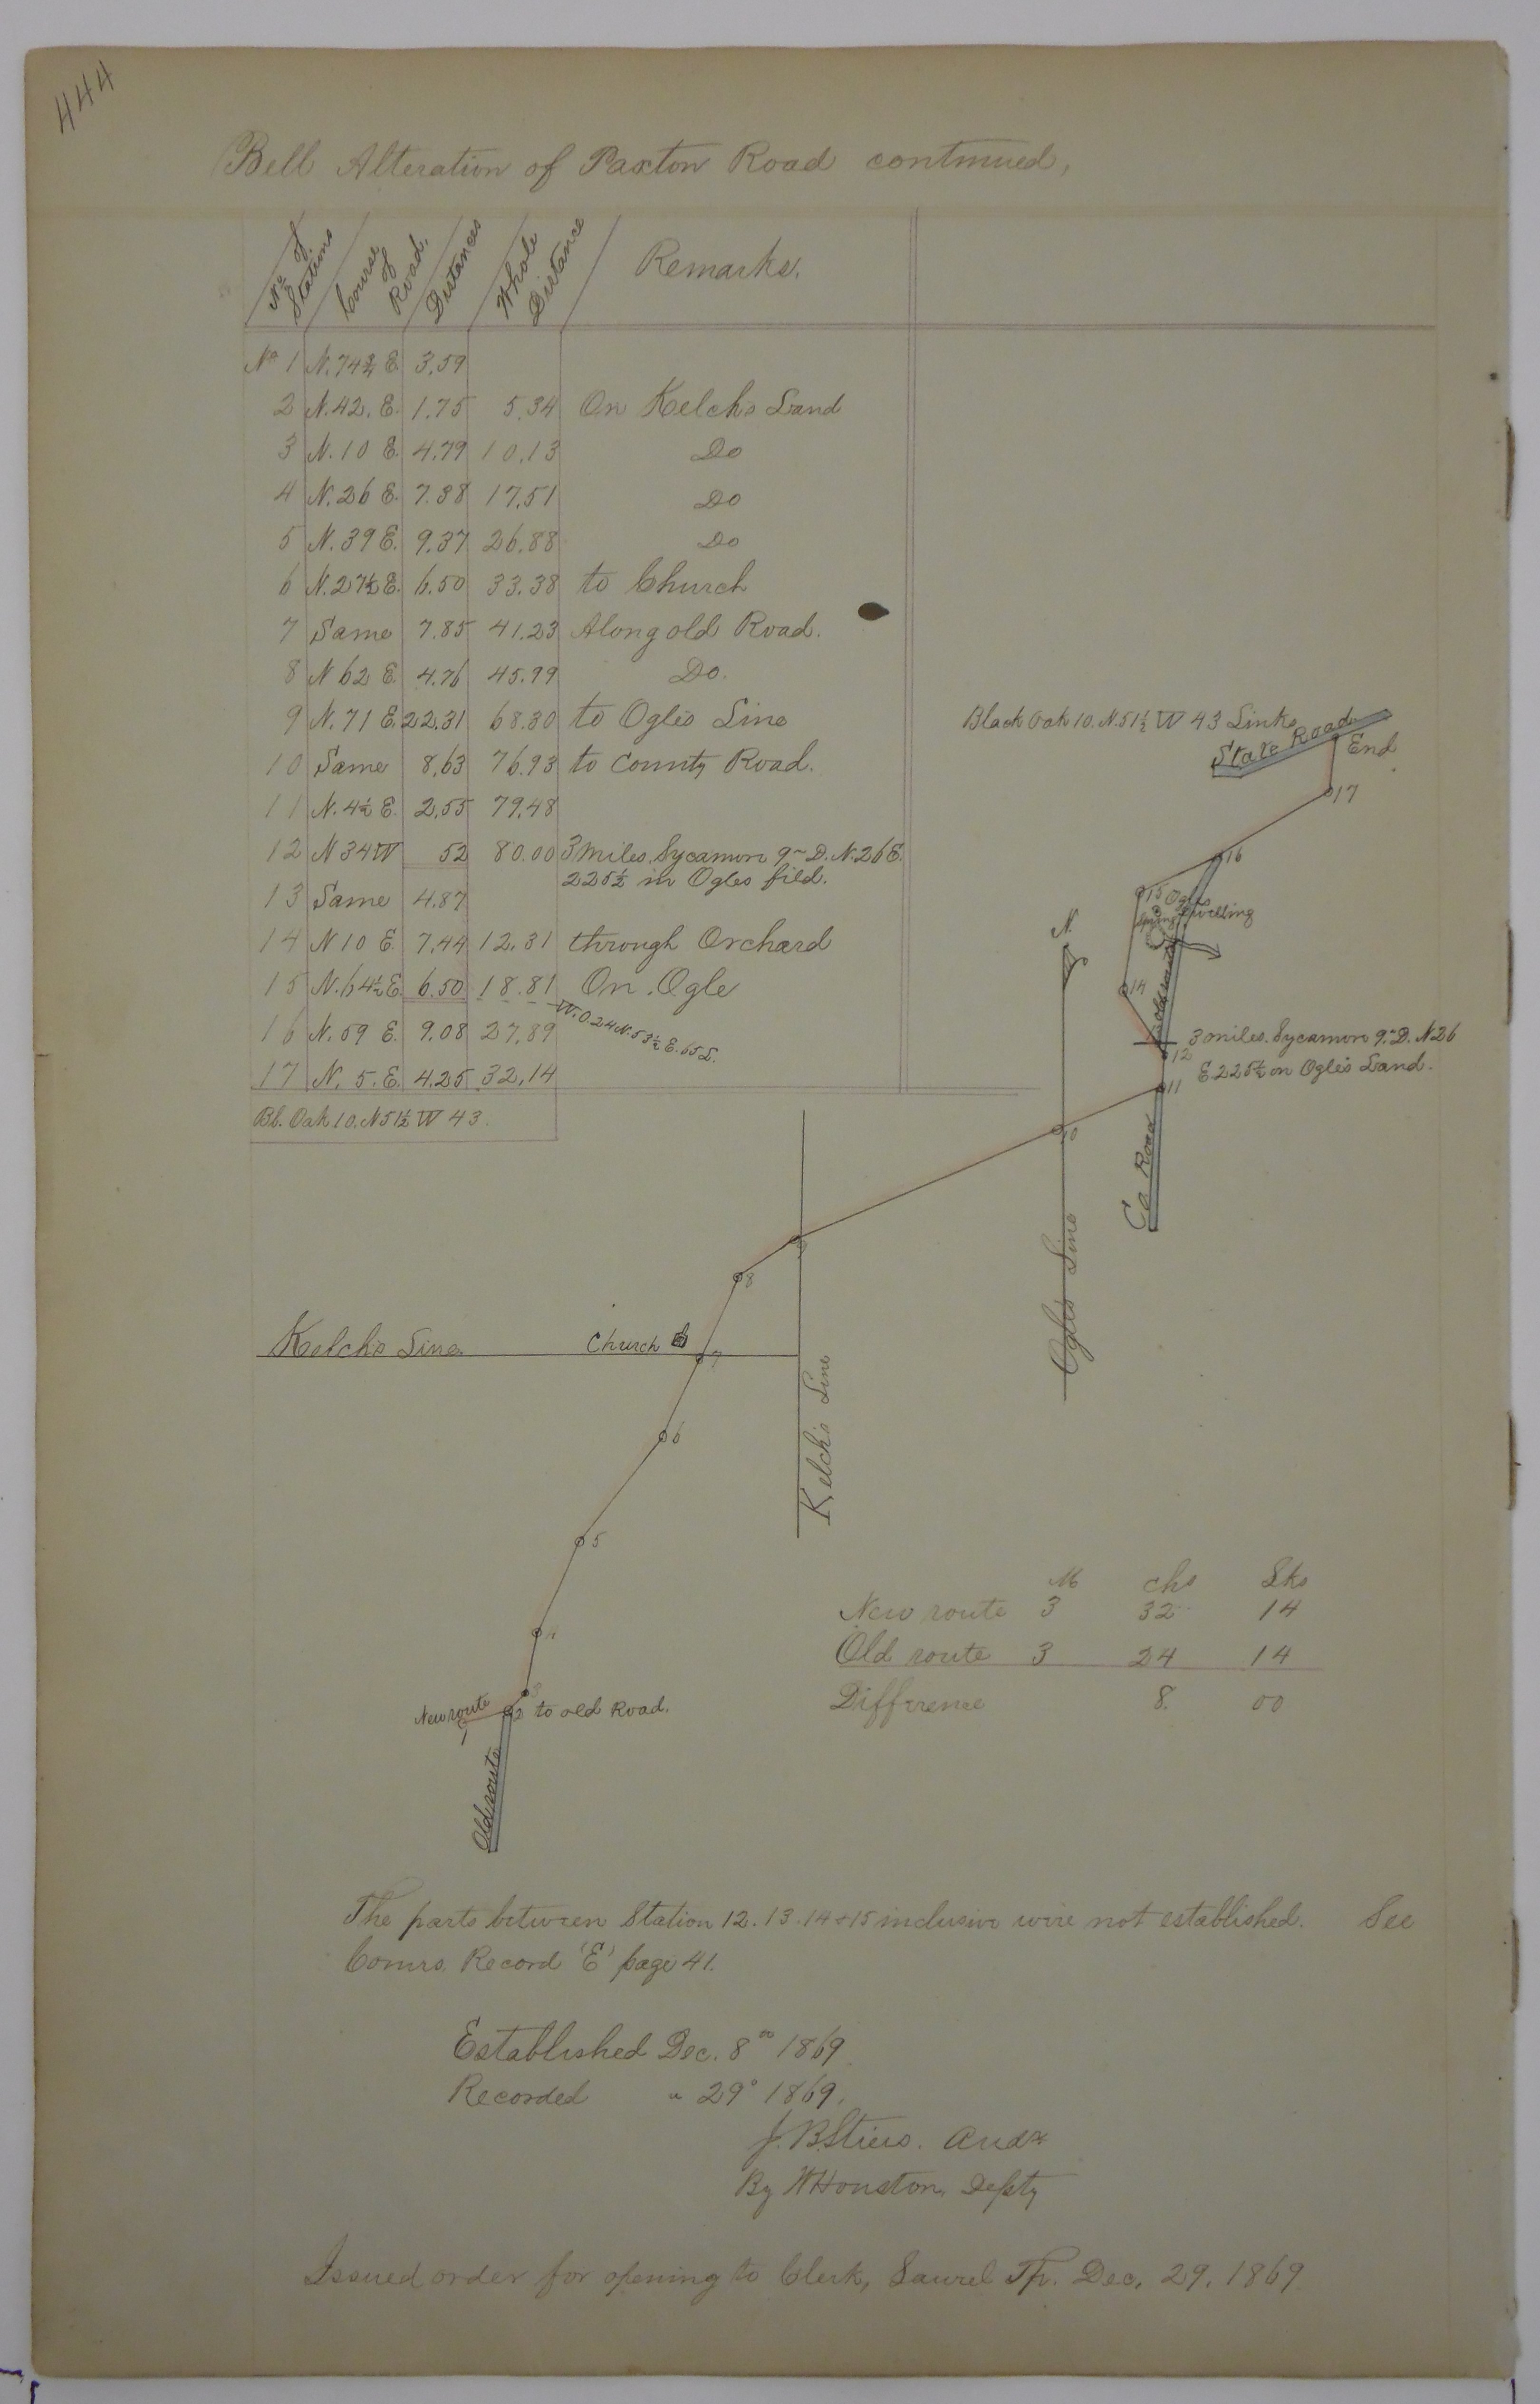 444
Bell Alteration of Paxton Road continued,
No of Stations Course of Road. Distances Whole Distance Remarks.
No 1 N. 74 3/4 E 3.59
2 N. 42. E. 1.75 5.34 On Kelch's Land
3 N. 10 E. 4.79 10.13 Do
4 N. 26 E. 7.38 17.51 Do
5 N. 39 E. 9.37 26.88 Do
6 N. 27 1/2 E. 6.50 33.38 to Church
7 Same 7.85 41.23 Along old Road.
8 N 62 E. 4.76 45.99 Do.
9 N. 71 E. 22.31 68.30 to Ogles Line
10 Same 8.63 76.93 to County Road.
11 N. 4 1/2 E. 2.55 79.48
12 N 34 W 52 80.00 3 miles. Sycamore 9 in D. N. 26 E.
225 1/2 in Ogles field.
13 Same 4.87
14 N 10 E. 7.44 12.31 through Orchard
15 N. 64 1/2 E. 6.50 18.81 On Ogle
W. O. 24 N. 53 1/2 E. 65 L.
16 N. 59 E. 9.08 27.89
17 N. 5. E. 4.25 32.14
Bl. Oak 10. N 51 1/2 W 43.
Black Oak 10. N. 51 1/2 W 43 Links
State Road
End
17
16
15 Ogles
Spring Dwelling
N.
14
12
3 miles. Sycamore 9 in D. N 26
E. 225 1/2 on Ogle's Land.
11
10
Co Road
Ogles Line
9
8
Kelch's Line
Church
7
Kelch's Line
6
5
4
3
New route
1
2 to old Road.
Old route
M chs Lks
New route 3 32 14
Old route 3 24 14
Difference 8. 00
The parts between Station 12. 13. 14 & 15 inclusive were not established. See
Comrs. Record 'E' page 41.
Established Dec. 8th 1869
Recorded " 29" 1869.
J. B. Stiers. Audr
By W Houston, Depty
Issued order for opening to Clerk, Laurel Tp. Dec. 29. 1869